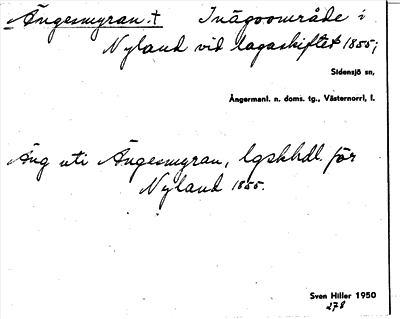 Ängesmyran. † Inägoområde i
Nyland vid lagaskiftet 1855;
Sidensjö sn,
Ångermanl. n. doms. tg., Västernorrl, l.
Äng uti Ängesmyran, lgskhdl. för
Nyland 1855.
Sven Hiller 1950
278